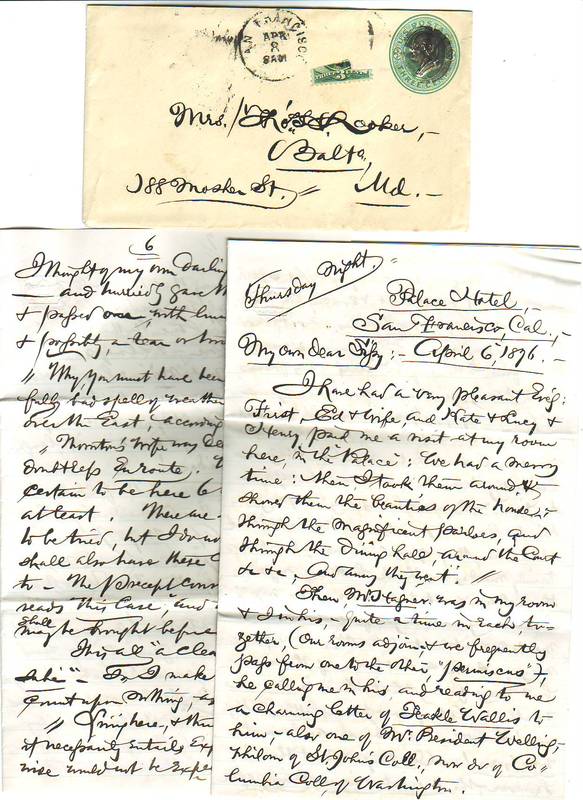 SAN FRANCISCO
APR
8
8AM
THREE CENTS
U.S. POSTAGE
THREE CENTS
Mrs. Thos. S. Rooker, -
Balto,
188 Mosher St. Md. -
6
I thought of my own darling
and hurriedly gave
& passed over, with
& possibly, a tear or
" Why, you must have been
fully bad spell of weather
over the East, according
" Thornton's wife was
doubtless En route.
certain to be here
at least. There are
to be tried, but I do not
shall also have these
to - the precept
reads "this Case", and
shall
may be brought before
This, all "a clea
I make
count upon nothing, as
" Living here, & the
it necessarily entails Exp
wise would not be expe
Thursday night.
Palace Hotel,
San Francisco, Cal., -
My own dear : - April 6, 1876. -
I have had a very pleasant Evg:
First, Ed & wife, and Kate & Lucy &
Henry, paid me a visit at my room
here, in the Palace: We had a merry
time: then I took them around, &
showed them the beauties of the house;
through the magnificent parlors, and
through the dining halls around the Court
&c &c, and away they went. "
Then, Mr. Hagner was in my room
& I in his, - quite a time in each, to-
gether, (Our rooms adjoin & we frequently
pass from one to the other, "permiscus"),
he calling me in his, and reading to me
a charming letter of Teakle Wallis to
him, - also one of Mr. President Welling, -
of St. John's Coll., now of Co-
lumbia Coll, of Washington.